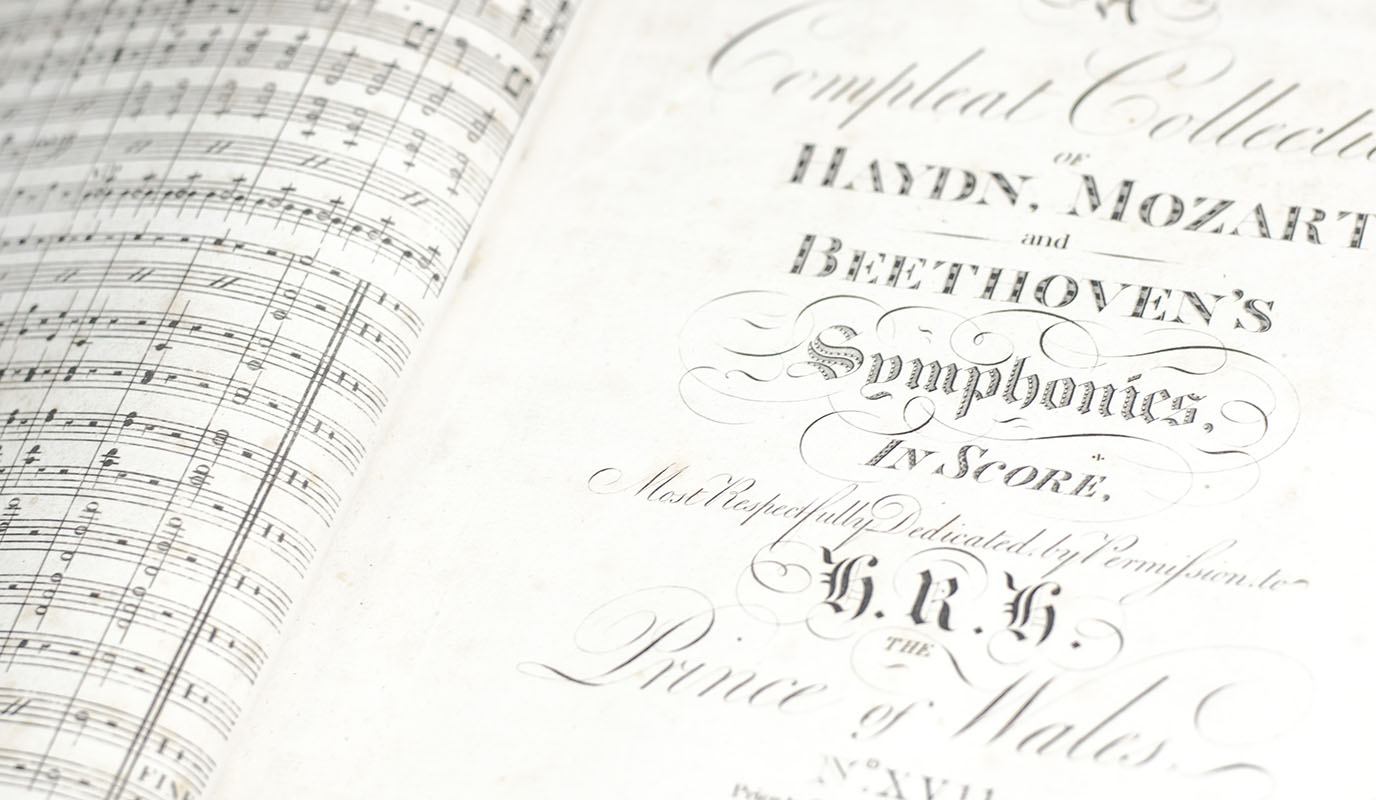 FINE
A
Compleat Collecti
OF
HAYDN, MOZART
and
BEETHOVEN'S
Symphonies,
IN SCORE,
Most Respectfully Dedicated, by Permiſsion, to
H. R. H.
THE
Prince of Wales.
No. XVII